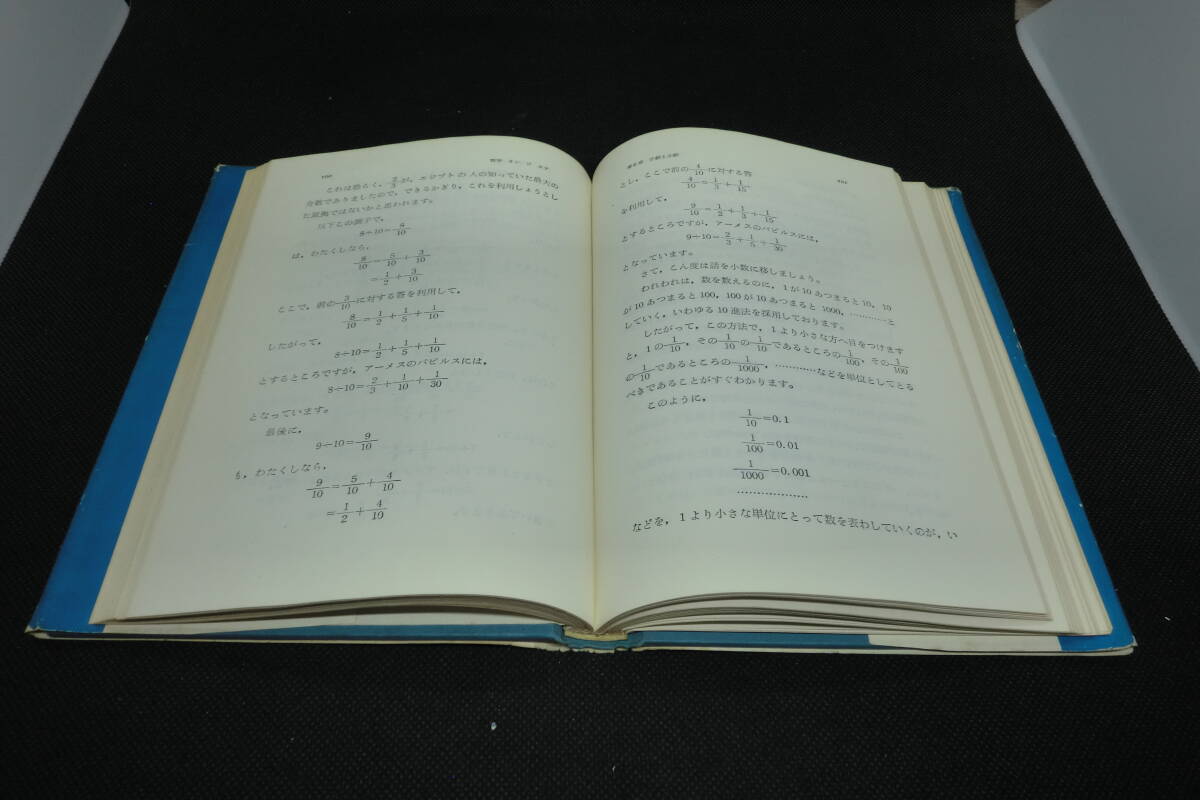 これは恐らく，2/3が，エジプトの人の知っていた最大の
分数でありましたので，できるかぎり，これを利用しようとし
た証拠ではないかと思われます。
以下この調子で，
8÷10=8/10
は，わたくしなら，
8/10=5/10+3/10
=1/2+3/10
ここで，前の3/10に対する答を利用して，
8/10=1/2+1/5+1/10
したがって，
8÷10=1/2+1/5+1/10
とするところですが，アーメスのパピルスには，
8÷10=2/3+1/10+1/30
となっています。
最後に，
9÷10=9/10
も，わたくしなら，
9/10=5/10+4/10
=1/2+4/10
とし，ここで前の4/10に対する答
4/10=1/3+1/15
を利用して，
9/10=1/2+1/3+1/15
とするところですが，アーメスのパピルスには，
9÷10=2/3+1/5+1/30
となっています。
さて，こん度は話を小数に移しましょう。
われわれは，数を数えるのに，1が10あつまると10，10
が10あつまると100，100が10あつまると1000，…………と
していく，いわゆる10進法を採用しております。
したがって，この方法で，1より小さな方へ目をつけます
と，1の1/10，その1/10の1/10であるところの1/100，その1/100
の1/10であるところの1/1000，…………などを単位としてとる
べきであることがすぐわかります。
このように，
1/10=0.1
1/100=0.01
1/1000=0.001
………………
などを，1より小さな単位にとって数を表わしていくのが，い